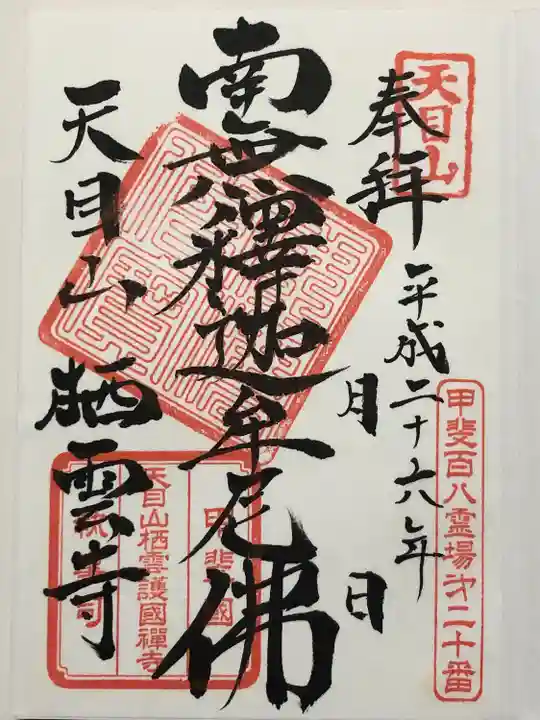 天目山
奉拝
平成二十六年
月 日
甲斐百八霊場第二十番
南無釋迦牟尼佛
天目山 栖雲寺
甲斐國
天目山栖雲護國禪寺